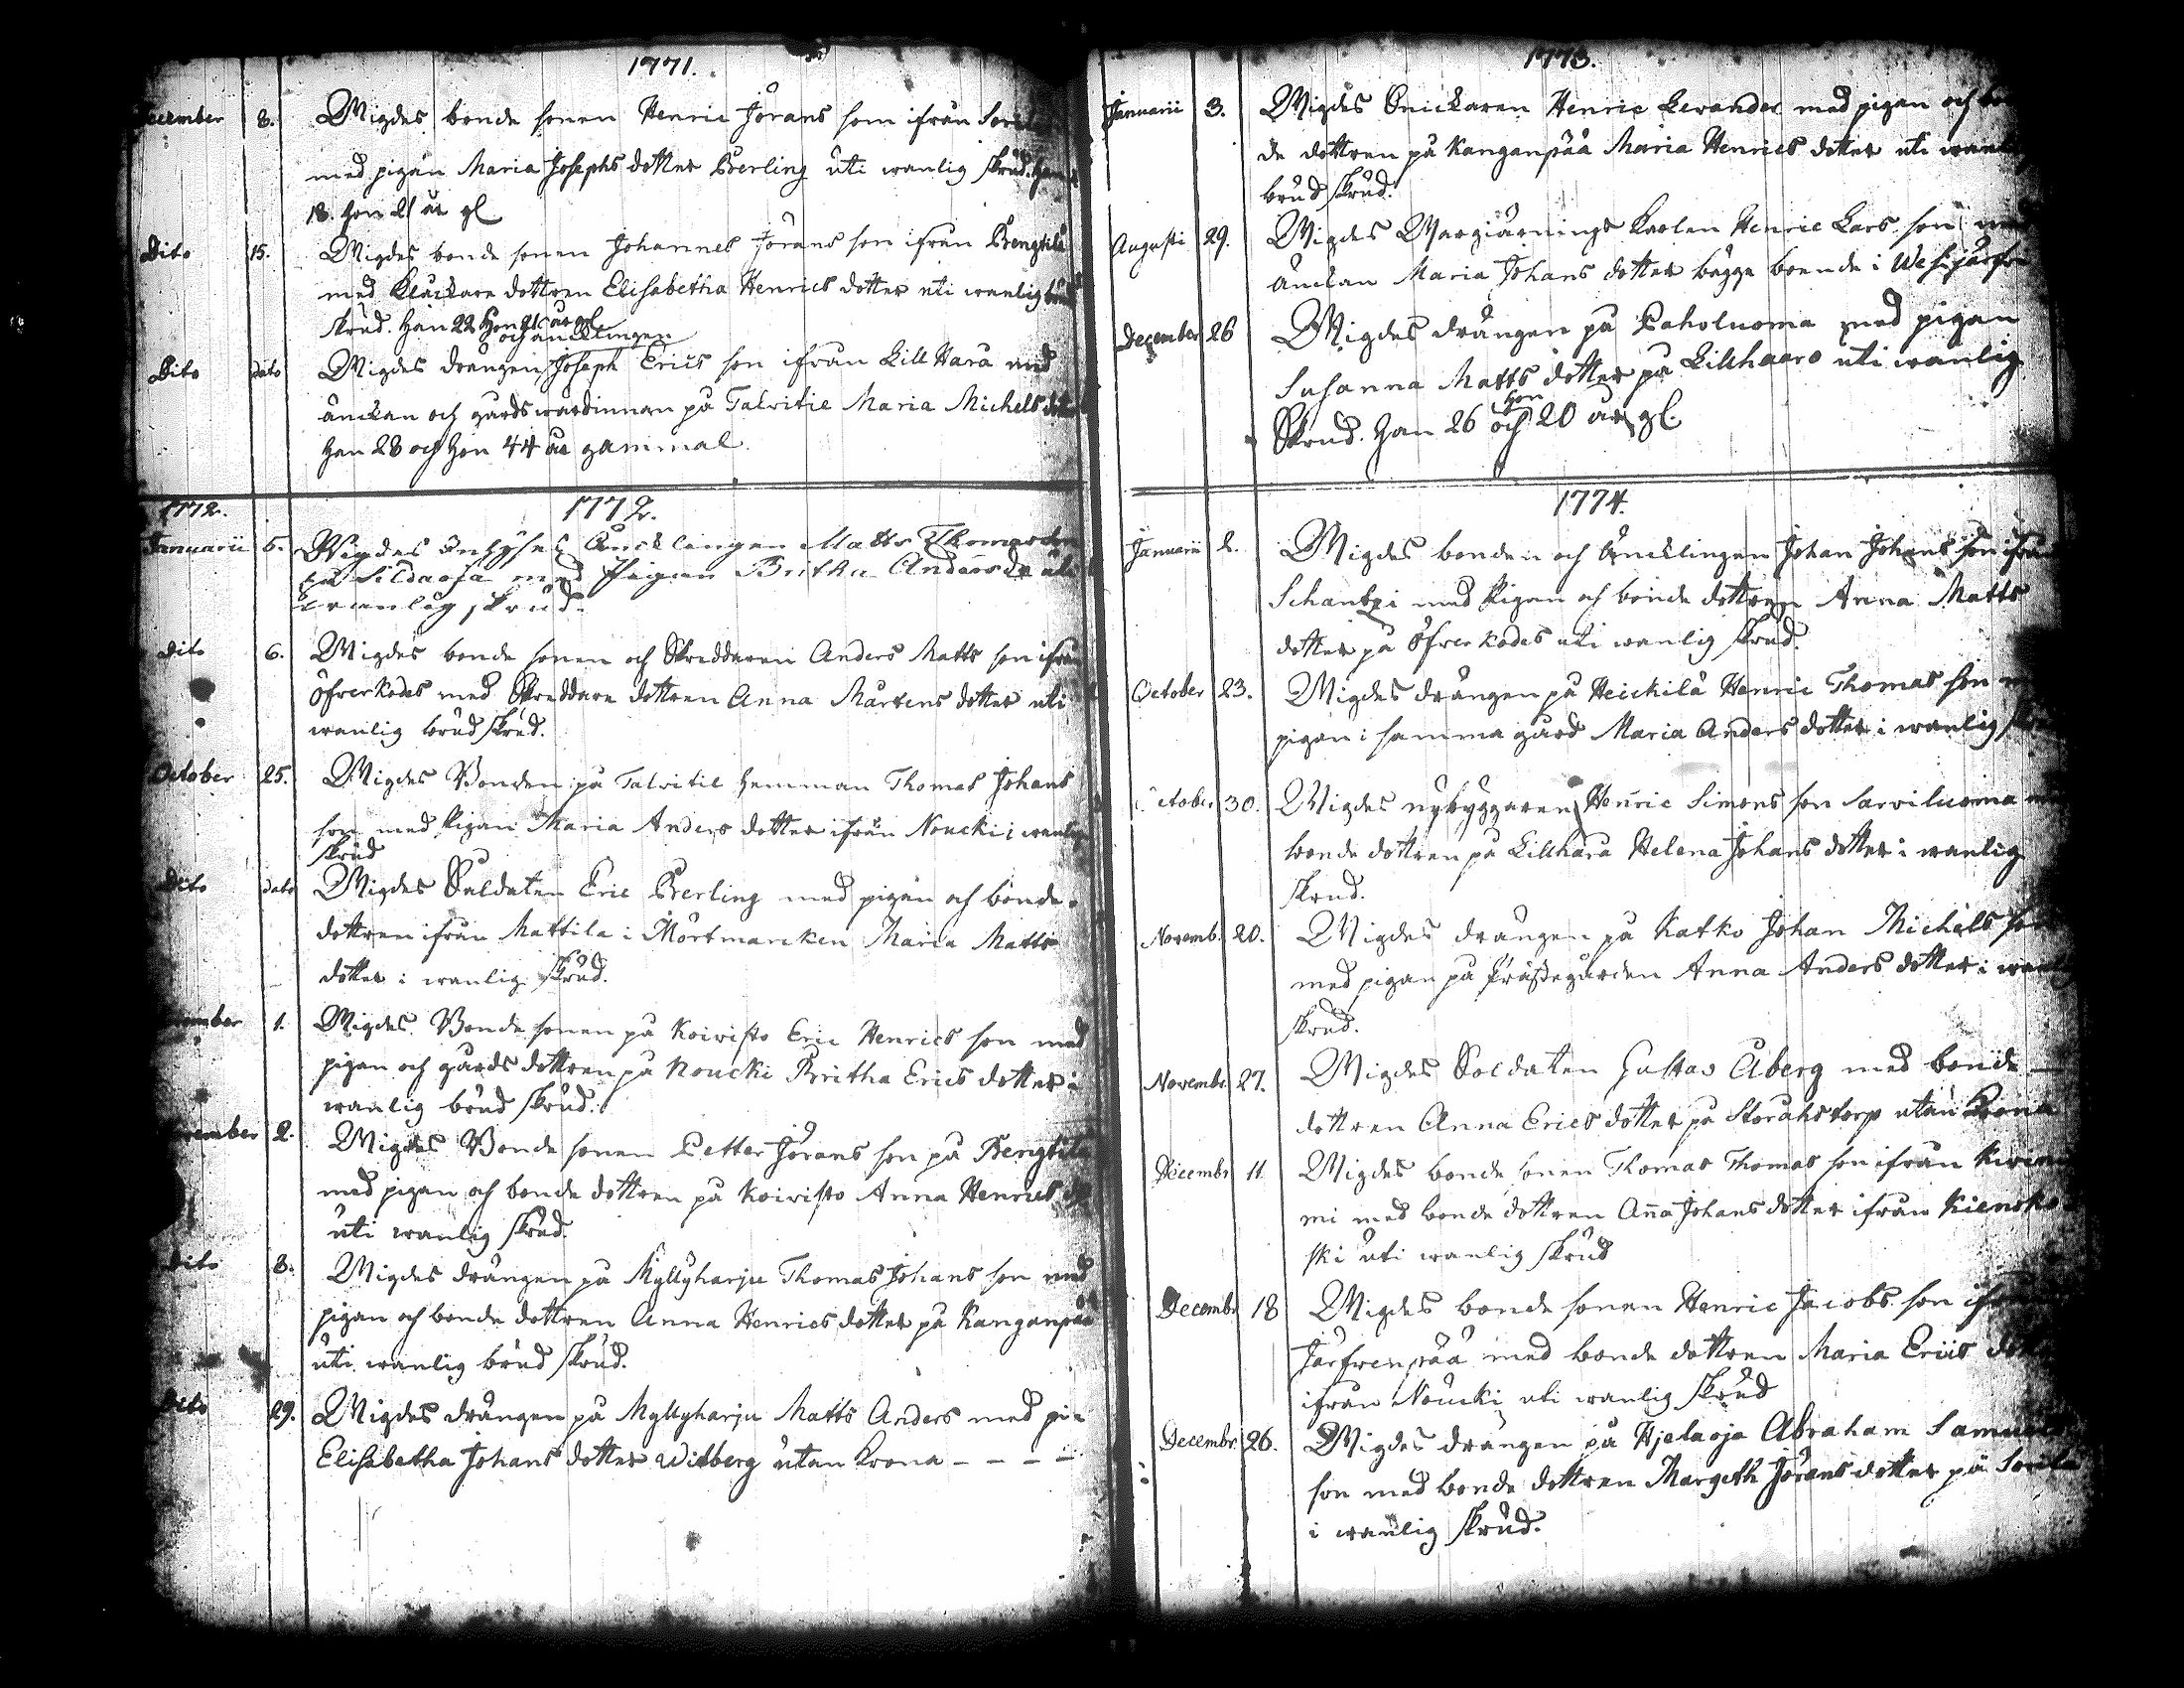 1771.
December 8. Wigdes bonde sonen Henric Jörans son ifrån Sorila
med pigan Maria Josephs dotter Berling uti wanlig skrud. Han
18. hon 21 år gl
Dito 15. Wigdes bonde sonen Johannes Jörans son ifrån Bengtila
med Kläckare dottren Elisabetha Henrics dotter uti wanlig brud
skrud. Han 22 Hon 21 år gl
och äncklingen
Dito dato Wigdes drängen Joseph Erics son ifrån Lill Hara med
änckan och gårds wärdinnan på Talvitie Maria Michels dotter
Han 28 och Hon 44 år gammal.
1772. 1772.
Januarii 5. Wigdes Inhyses Äncklingen Matts Thomasson
på Sildaoja med Pigan Britha Andersdr uti
wanlig skrud.
dito 6. Wigdes bonde sonen och Skreddaren Anders Matts son ifrån
Öfverkodes med Skreddare dottren Anna Mårtens dotter uti
wanlig brud skrud.
October 25. Wigdes Bonden på Talvitie hemman Thomas Johans
son med Pigan Maria Anders dotter ifrån Noucki i wanlig
skrud
Dito dato Wigdes Saldaten Eric Berling med pigan och bonde-
dottren ifrån Mattila i Mörtmarcken Maria Matts
dotter i wanlig skrud.
November 1. Wigdes Bonde sonen på Koivisto Eric Henrics son med
pigan och gårds dottren på Noucki Britha Erics dotter i
wanlig brud skrud.
November 2. Wigdes Bonde sonen Petter Jörans son på Bengtila
med pigan och bonde dottren på Koivisto Anna Henrics dr
uti wanlig skrud.
Dito 8. Wigdes drängen på Myllyharju Thomas Johans son med
pigan och bonde dottren Anna Henrics dotter på Kanganpää
uti wanlig brud skrud.
Dito 29. Wigdes drängen på Myllyharju Matts Anders med pi-
Elisabetha Johans dotter Witberg utan Krona - - - -
1773.
Januarii 3. Wigdes Snickaren Henric Levander med pigan och bon
de dottren på Kanganpää Maria Henrics dotter uti wanlig
brud skrud.
Augusti 29. Wigdes Wargiärnings Karlen Henric Lars son med
änckan Maria Johans dotter bägge boende i
December 26 Wigdes drängen på Paholuoma med pigan
Susanna Matts dotter på Lillhaaro uti wanlig
hon
Skrud. Han 26 och 20 år gl.
1774.
Januarii 2. Wigdes bonden och Äncklingen Johan Johans son ifrån
Schantzi med Pigan och bonde dottren Anna Matts
dotter på Öfverkodes uti wanlig skrud.
October 23. Wigdes drängen på Heickilä Henric Thomas son
pigan i samma gård Maria Anders dotter i wanlig skrud
October 30. Wigdes nybyggaren Henric Simons son Sarviluoma
bonde dottren på Lillhara Helena Johans dotter i wanlig
skrud.
Novemb. 20. Wigdes drängen på Katko Johan Michels son
med pigan på Prästegården Anna Anders dotter i wanlig
skrud.
Novembr. 27. Wigdes Soldaten Gustav Åberg med bonde
dottren Anna Erics dotter på Storåhstorp utan Krona
Decembr 11. Wigdes bonde sonen Thomas Thomas son ifrån
mi med bonde dottren Anna Johans dotter ifrån Kiensko
ski uti wanlig skrud
Decembr 18 Wigdes bonde sonen Henric Jacobs son ifrån
Järfvenpää med bonde dottren Maria Erics dotter
ifrån Noucki uti wanlig skrud
Decembr. 26. Wigdes drängen på Hjelaoja Abraham Samuels
son med bonde dottren Margeth Jörans dotter på Sorila
i wanlig skrud.